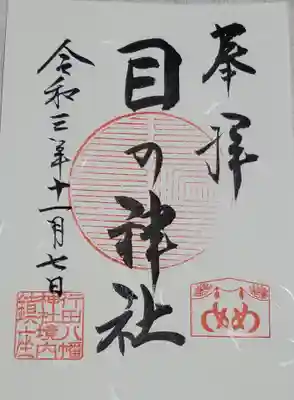 奉拝
目の神社
令和三年十一月七日
め め
行田八幡
神社境内
鎮座